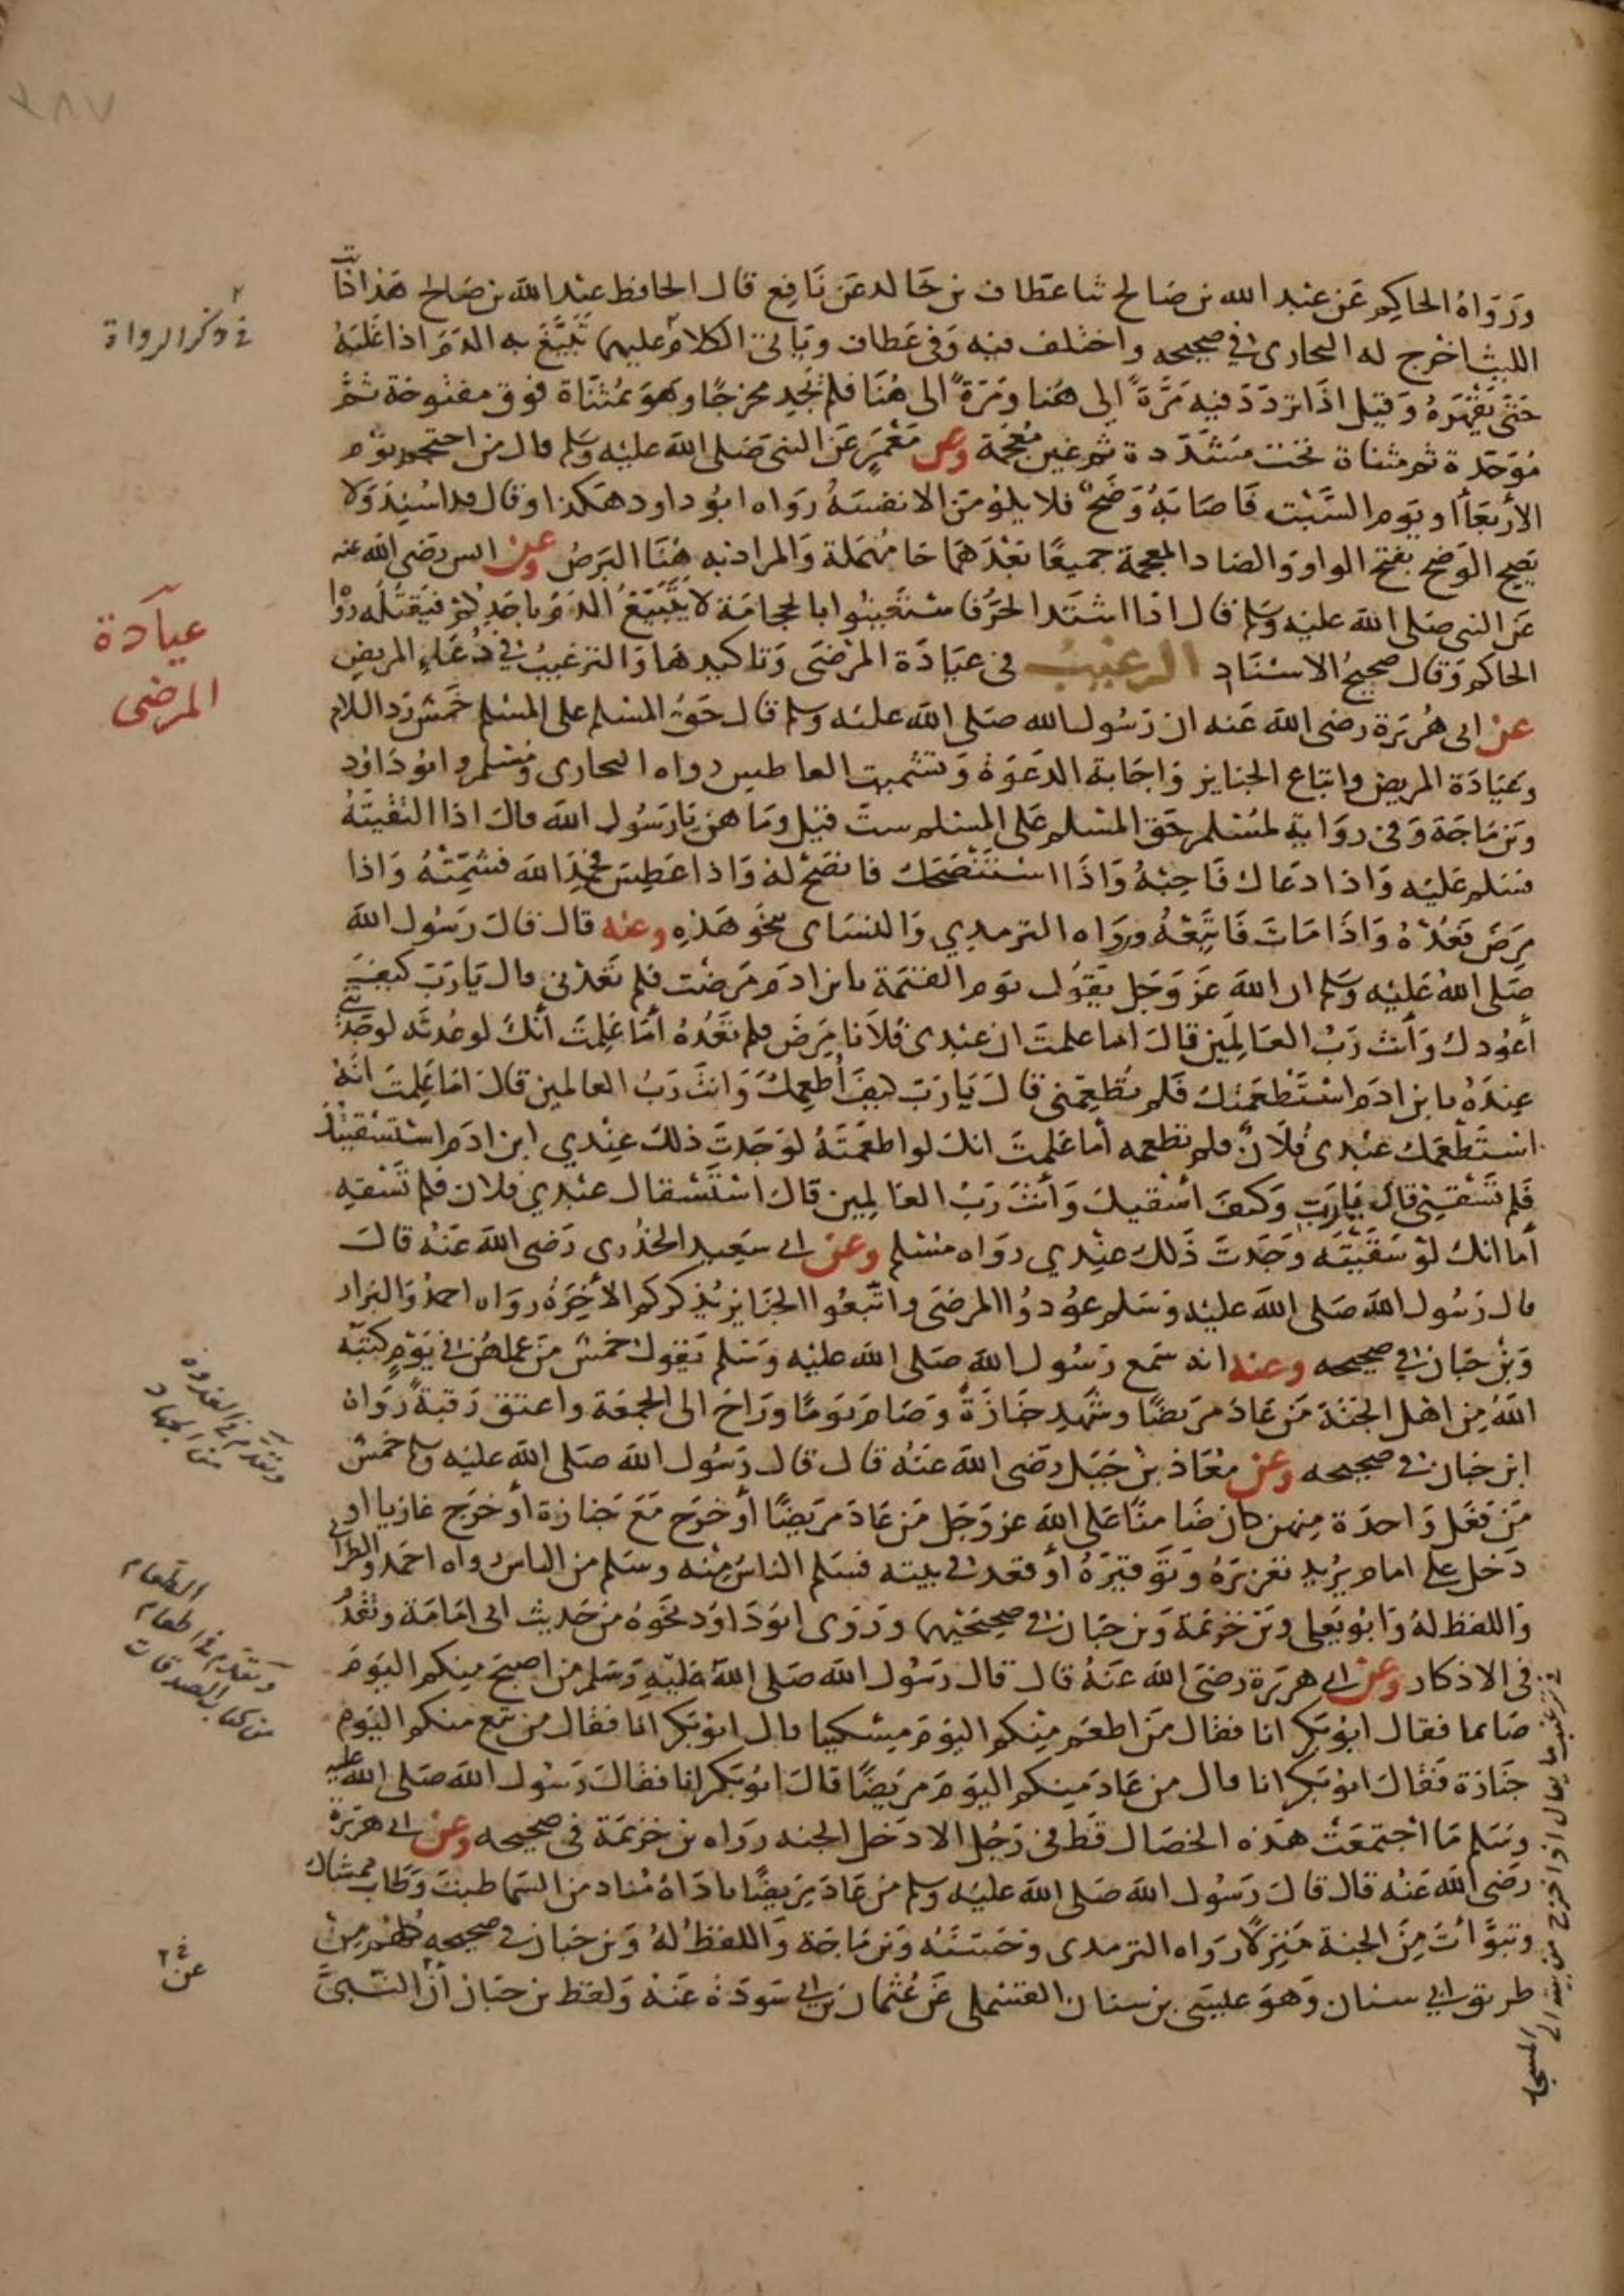 ٢٨٧
ورواه الحاكم عن عبد الله بن صالح ثنا عطاف بن خالد عن نافع قال الحافظ عبد الله بن صالح هذا كاتب
الليث اخرج له البخاري في صحيحه واختلف فيه وفي عطاف وياتي الكلام عليهما تبيغ به الدم اذا غلبه
حتى يقهره وقيل اذا تردد فيه مرة الى هنا ومرة الى هنا فلم يجد مخرجا وهو بمثناة فوق مفتوحة ثم
موحدة ثم مثناة تحت مشددة ثم غين معجمة وعن معمر عن النبي صلى الله عليه وسلم قال من احتجم يوم
الأربعاء أو يوم السبت فاصابه وضح فلا يلومن الا نفسه رواه ابو داود هكذا وقال قد اسند ولا
يصح الوضح بفتح الواو والضاد المعجمة جميعا بعدهما حا مهملة والمراد به هنا البرص وعن انس رضي الله عنه
عن النبي صلى الله عليه وسلم قال اذا اشتد الحر فاستعينوا بالحجامة لا يتبيغ الدم باحدكم فيقتله رواه
الحاكم وقال صحيح الاسناد الترغيب في عيادة المرضى وتاكيدها والترغيب في دعاء المريض
عن ابي هريرة رضي الله عنه ان رسول الله صلى الله عليه وسلم قال حق المسلم على المسلم خمس رد السلام
وعيادة المريض واتباع الجنايز واجابة الدعوة وتشميت العاطس رواه البخاري ومسلم وابو داود
وبن ماجة وفي رواية لمسلم حق المسلم على المسلم ست قيل وما هن يا رسول الله قال اذا التقيته
فسلم عليه واذا دعاك فاجبه واذا استنصحك فانصح له واذا عطس فحمد الله فشمته واذا
مرض فعده واذا مات فاتبعه ورواه الترمدي والنساي بنحو هذه وعنه قال قال رسول الله
صلى الله عليه وسلم ان الله عز وجل يقول يوم القيمة يا بن ادم مرضت فلم تعدني قال يا رب كيف
أعودك وأنت رب العالمين قال اما علمت ان عبدي فلانا مرض فلم تعده أما علمت أنك لو عدته لوجدتني
عنده يا بن ادم استطعمتك فلم تطعمني قال يا رب كيف أطعمك وانت رب العالمين قال اما علمت انه
استطعمك عبدي فلان فلم تطعمه أما علمت انك لو اطعمته لوجدت ذلك عندي ابن ادم استسقيتك
فلم تسقني قال يا رب وكيف أسقيك وأنت رب العالمين قال استسقاك عبدي فلان فلم تسقه
أما انك لو سقيته وجدت ذلك عندي رواه مسلم وعن ابي سعيد الخدري رضي الله عنه قال
قال رسول الله صلى الله عليه وسلم عودوا المرضى واتبعوا الجنايز يذكركم الأخرة رواه احمد والبزار
وبن حبان في صحيحه وعنه انه سمع رسول الله صلى الله عليه وسلم يقول خمس من عملهن في يوم كتبه
الله من اهل الجنة من عاد مريضا وشهد جنازة وصام يوما وراح الى الجمعة واعتق رقبة رواه
ابن حبان في صحيحه وعن معاذ بن جبل رضي الله عنه قال قال رسول الله صلى الله عليه وسلم خمس
من فعل واحدة منهن كان ضامنا على الله عز وجل من عاد مريضا أو خرج مع جنازة أو خرج غازيا او
دخل على امام يريد تعزيزه وتوقيره أو قعد في بيته فسلم الناس منه وسلم من الناس رواه احمد والطبراني
واللفظ له وابو يعلى وبن خزيمة وبن حبان في صحيحيهما وروى ابو داود نحوه من حديث ابي امامة وتقدم
في الاذكار وعن ابي هريرة رضي الله عنه قال قال رسول الله صلى الله عليه وسلم من اصبح منكم اليوم
صايما فقال ابو بكر انا فقال من اطعم منكم اليوم مسكينا قال ابو بكر انا فقال من تبع منكم اليوم
جنازة فقال ابو بكر انا قال من عاد منكم اليوم مريضا قال ابو بكر انا فقال رسول الله صلى الله عليه
وسلم ما اجتمعت هذه الخصال قط في رجل الا دخل الجنه رواه بن خزيمة في صحيحه وعن ابي هريرة
رضي الله عنه قال قال رسول الله صلى الله عليه وسلم من عاد مريضا ناداه مناد من السما طبت وطاب ممشاك
وتبوأت من الجنة منزلا رواه الترمدي وحسنه وبن ماجة واللفظ له وبن حبان في صحيحه كلهم من
طريق ابي سنان وهو عيسى بن سنان القسملي عن عثمان بن ابي سودة عنه ولفظ بن حبان أن النبي
في ذكر الرواة
عيادة
المرضى
وتقدم في الغدوة
من الجهاد
الطعام
وتقدم في اطعام
من كتاب الصدقات
في ترغيب ما يقال اذا خرج من بيته الى
المسجد
عن